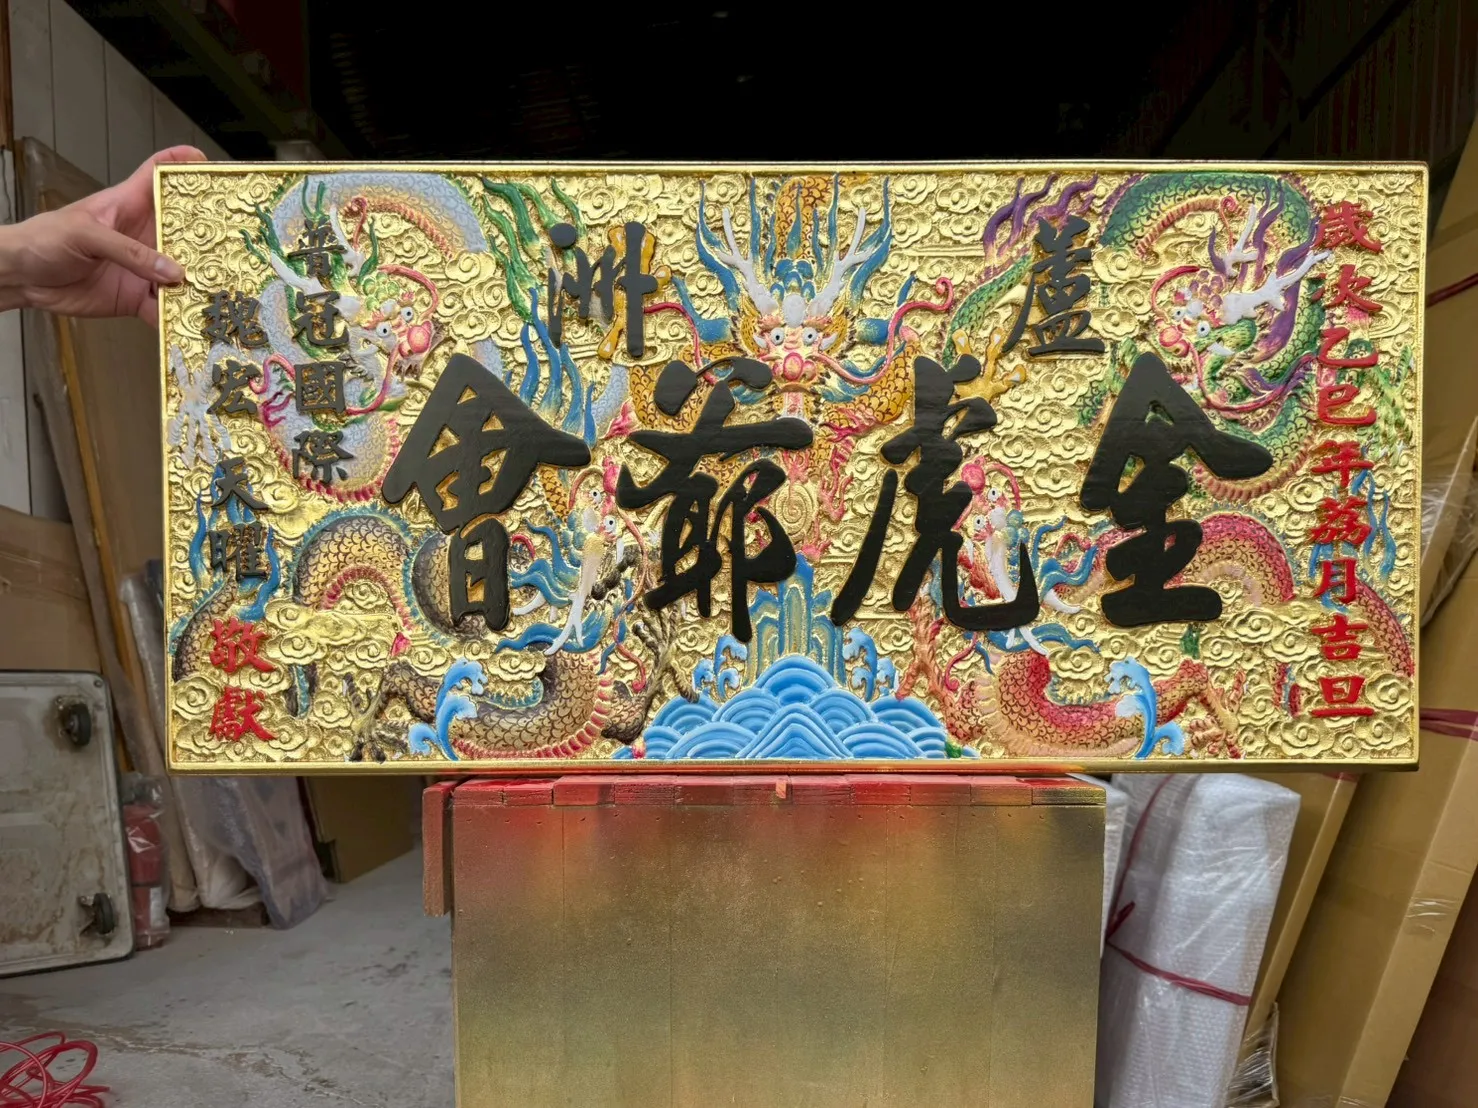 歲次乙巳年荔月吉旦
蘆洲
金虎爺會
普冠國際
魏宏天曜
敬獻